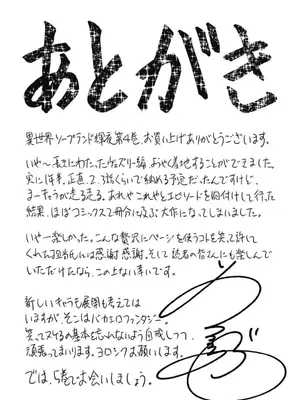 あとがき
異世界ソープランド輝夜第4巻、お買い上げありがとうございます。
いや〜長きにわたったウェズリー編、ようやく着地することができました。
実に1年半。正直、2、3話くらいで納める予定だったんですけど、
キャラが走る走る。あれやこれやとエピソードを肉付けして行った
結果、ほぼコミックス2冊分に及ぶ大作になってしまいました。
いや〜楽しかった。こんな贅沢にページを使うコトを笑って許して
くれた担当氏には感謝感謝、そして読者の皆さんにも楽しんで
いただけたなら、この上ない幸いです。
新しいキャラも展開も考えては
いますが、そこはバカエロファンタジー
笑ってヌケるの基本を忘れないよう自戒しつつ
頑張ってまいります。ヨロシクお願いします。
では、5巻でお会いしましょう。